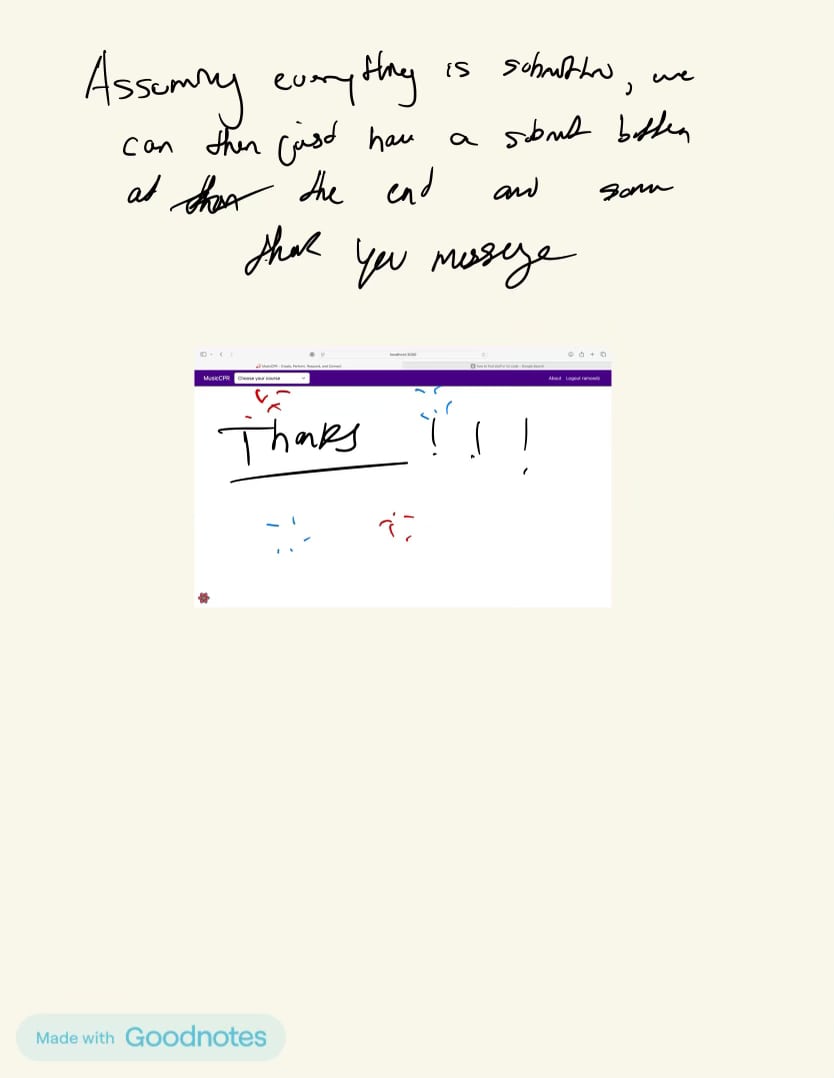 Assuming everything is submitted, we
can then just have a submit button
at the end and some
thank you message
MusicCPR - Create, Perform, Respond, and Connect
localhost:3000
MusicCPR Choose your course About Logout
Thanks !!!
Made with Goodnotes